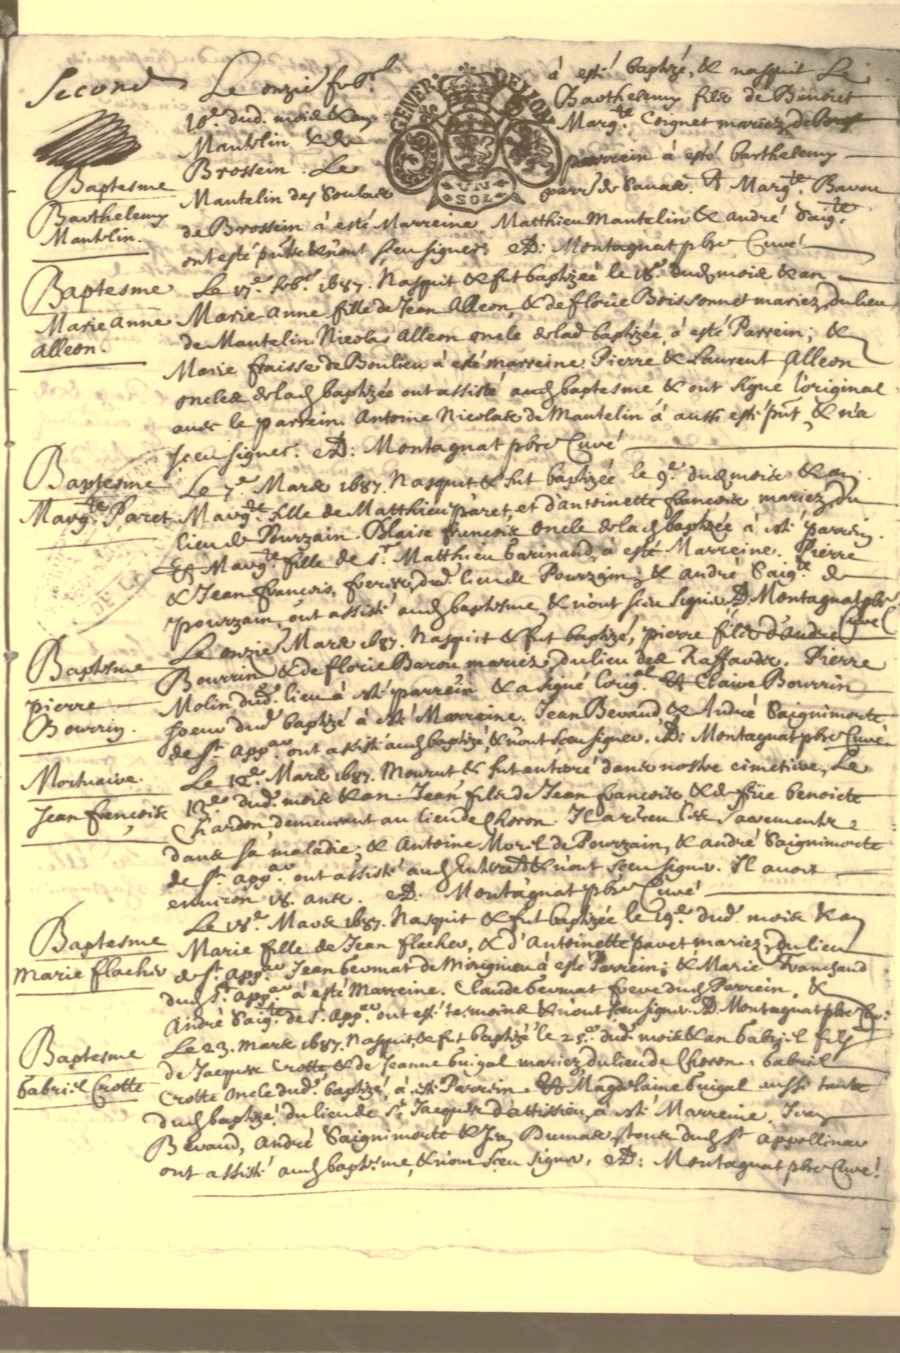 Second
Baptesme
Barthelemy
Mantelin.
Le onzie febr. à esté baptizé, & nasquit Le
10e dud. mois & an Barthelemy fils de Benoist
Mantelin & de Marg.te Coignet mariez de
Brossein. Le parrein à esté barthelemy
Mantelin des Marg.te Bavou
de Brossein à esté Marreine. Matthieu Mantelin & André Saig.te
ont esté & n'ont sceu signer. D: Montagnat pbre Curé
Baptesme
Marie Anne
Alleon.
Le 17e feb. 1687. Nasquit & fut baptizée le 18e dud mois & an
Marie Anne fille de Jean Alleon, & de florie Boissonnet mariez, du lieu
de Mantelin Nicolas Alleon oncle de lad baptizée, à esté Parrein; &
Marie fraisse de Boulieu à esté marreine. Pierre & Laurent Alleon
oncles de lad baptizée ont assisté aud baptesme & ont signé l'original
avec le parrein. Antoine Nicolas de Mantelin à aussi esté pnt, & n'a
sceu signer. D: Montagnat pbre Curé
Baptesme
Marg.te Paret
Le 7e Mars 1687. Nasquit & fut baptizée le 9e dud mois & an.
Marg.te fille de Matthieu paret, et d'antoinette françois mariez, du
lieu de Pourzain. Blaise françois oncle de lad baptizée à esté parrein.
Et Marg.te fille de sr. Matthieu Garinaud, à esté Marreine. Pierre
& Jean françois, freres, dud. lieu de Pourzain; & andré Saig.te de
Pourzain, ont assisté aud baptesme, & n'ont sceu signer D, Montagnat pbre
Curé
Baptesme
pierre
Bourrin.
Le onzie Mars 1687. Nasquit & fut baptizé, pierre fils d'André
Bourrin & de florie Barou mariez, du lieu des Raffaudx. Pierre
Molin dud. lieu à esté parrein & a signé l'orig.al Et Claire Bourrin
soeur dud. baptizé à esté Marreine. Jean Bevaud & André Saignimorte
de St. App.ar ont assisté aud baptizé, & n'ont sceu signer. D: Montagnat pbre Curé.
Mortuaire.
Jean françois
Le 12e Mars 1687. Mourut & fut enterré dans nostre cimetiere, Le
13e dud. mois & an. Jean fils de Jean françois, & de füe benoiste
Chardon, demeurant au lieu de Choron. Il a receu les sacrements
dans sa maladie; & Antoine Moril de Pourzain, & andré Saignimorte
de St. app.ar ont assisté aud & n'ont sceu signer. Il avoit
environ 18. ans. D: Montagnat pbre Curé
Baptesme
Marie flacher
Le 18e Mars 1687. Nasquit & fut baptizée le 19e dud. mois & an
Marie fille de Jean flacher, & d'Antoinette paret mariez, du lieu
de St. App.ar Jean bermat de Mirignieu à esté Parrein; & Marie Franchaud
dud St. App.ar à esté Marreine. Claude bermat frere dud Parrein, &
André Saig.te de St. App.ar ont esté tesmoins & n'ont sceu signer. D. Montagnat pbre Curé
Baptesme
Gabriel Crotte
Le 23. Mars 1687. Nasquit & fut baptizé le 25e dud. mois & an Gabriel fils
de Jacques Crotte & de Jeanne buigal mariez, du lieu de Choron. Gabriel
Crotte oncle dud. baptizé, à esté Parrein. Et Magdelaine buigal aussi tante
dud baptizé, du lieu de St. Jacques d'attissieu, à esté Marreine. Jean
Bevaud, André Saignimorte & Jean Dumas, tous dud St appollinar
ont assisté aud baptesme, & n'ont sceu signer. D: Montagnat pbre Curé.
GENER. DE LLON
UN
SOL